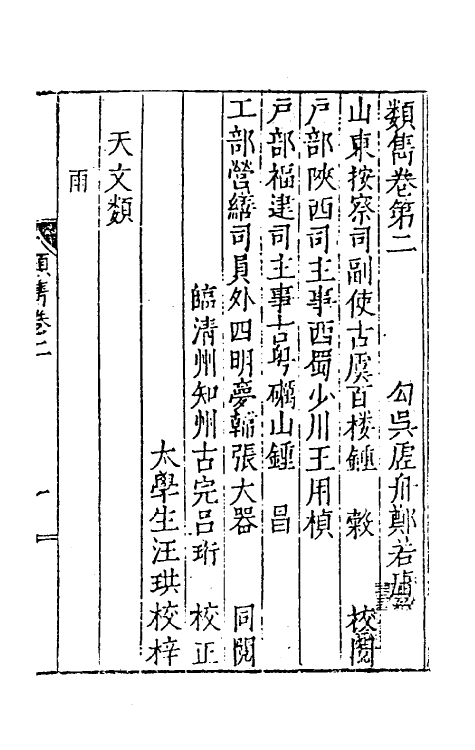 類雋卷第二　勾吳虛舟鄭若庸
山東按察司副使古虞百樓鍾　穀　校閱
戶部陝西司主事西蜀少川王用楨
戶部福建司主事古粵礪山鍾　昌
工部營繕司員外四明夢輔張大器　同閱
臨清州知州古完呂珩　校正
太學生汪珙校梓
天文類
雨
類雋卷二
一